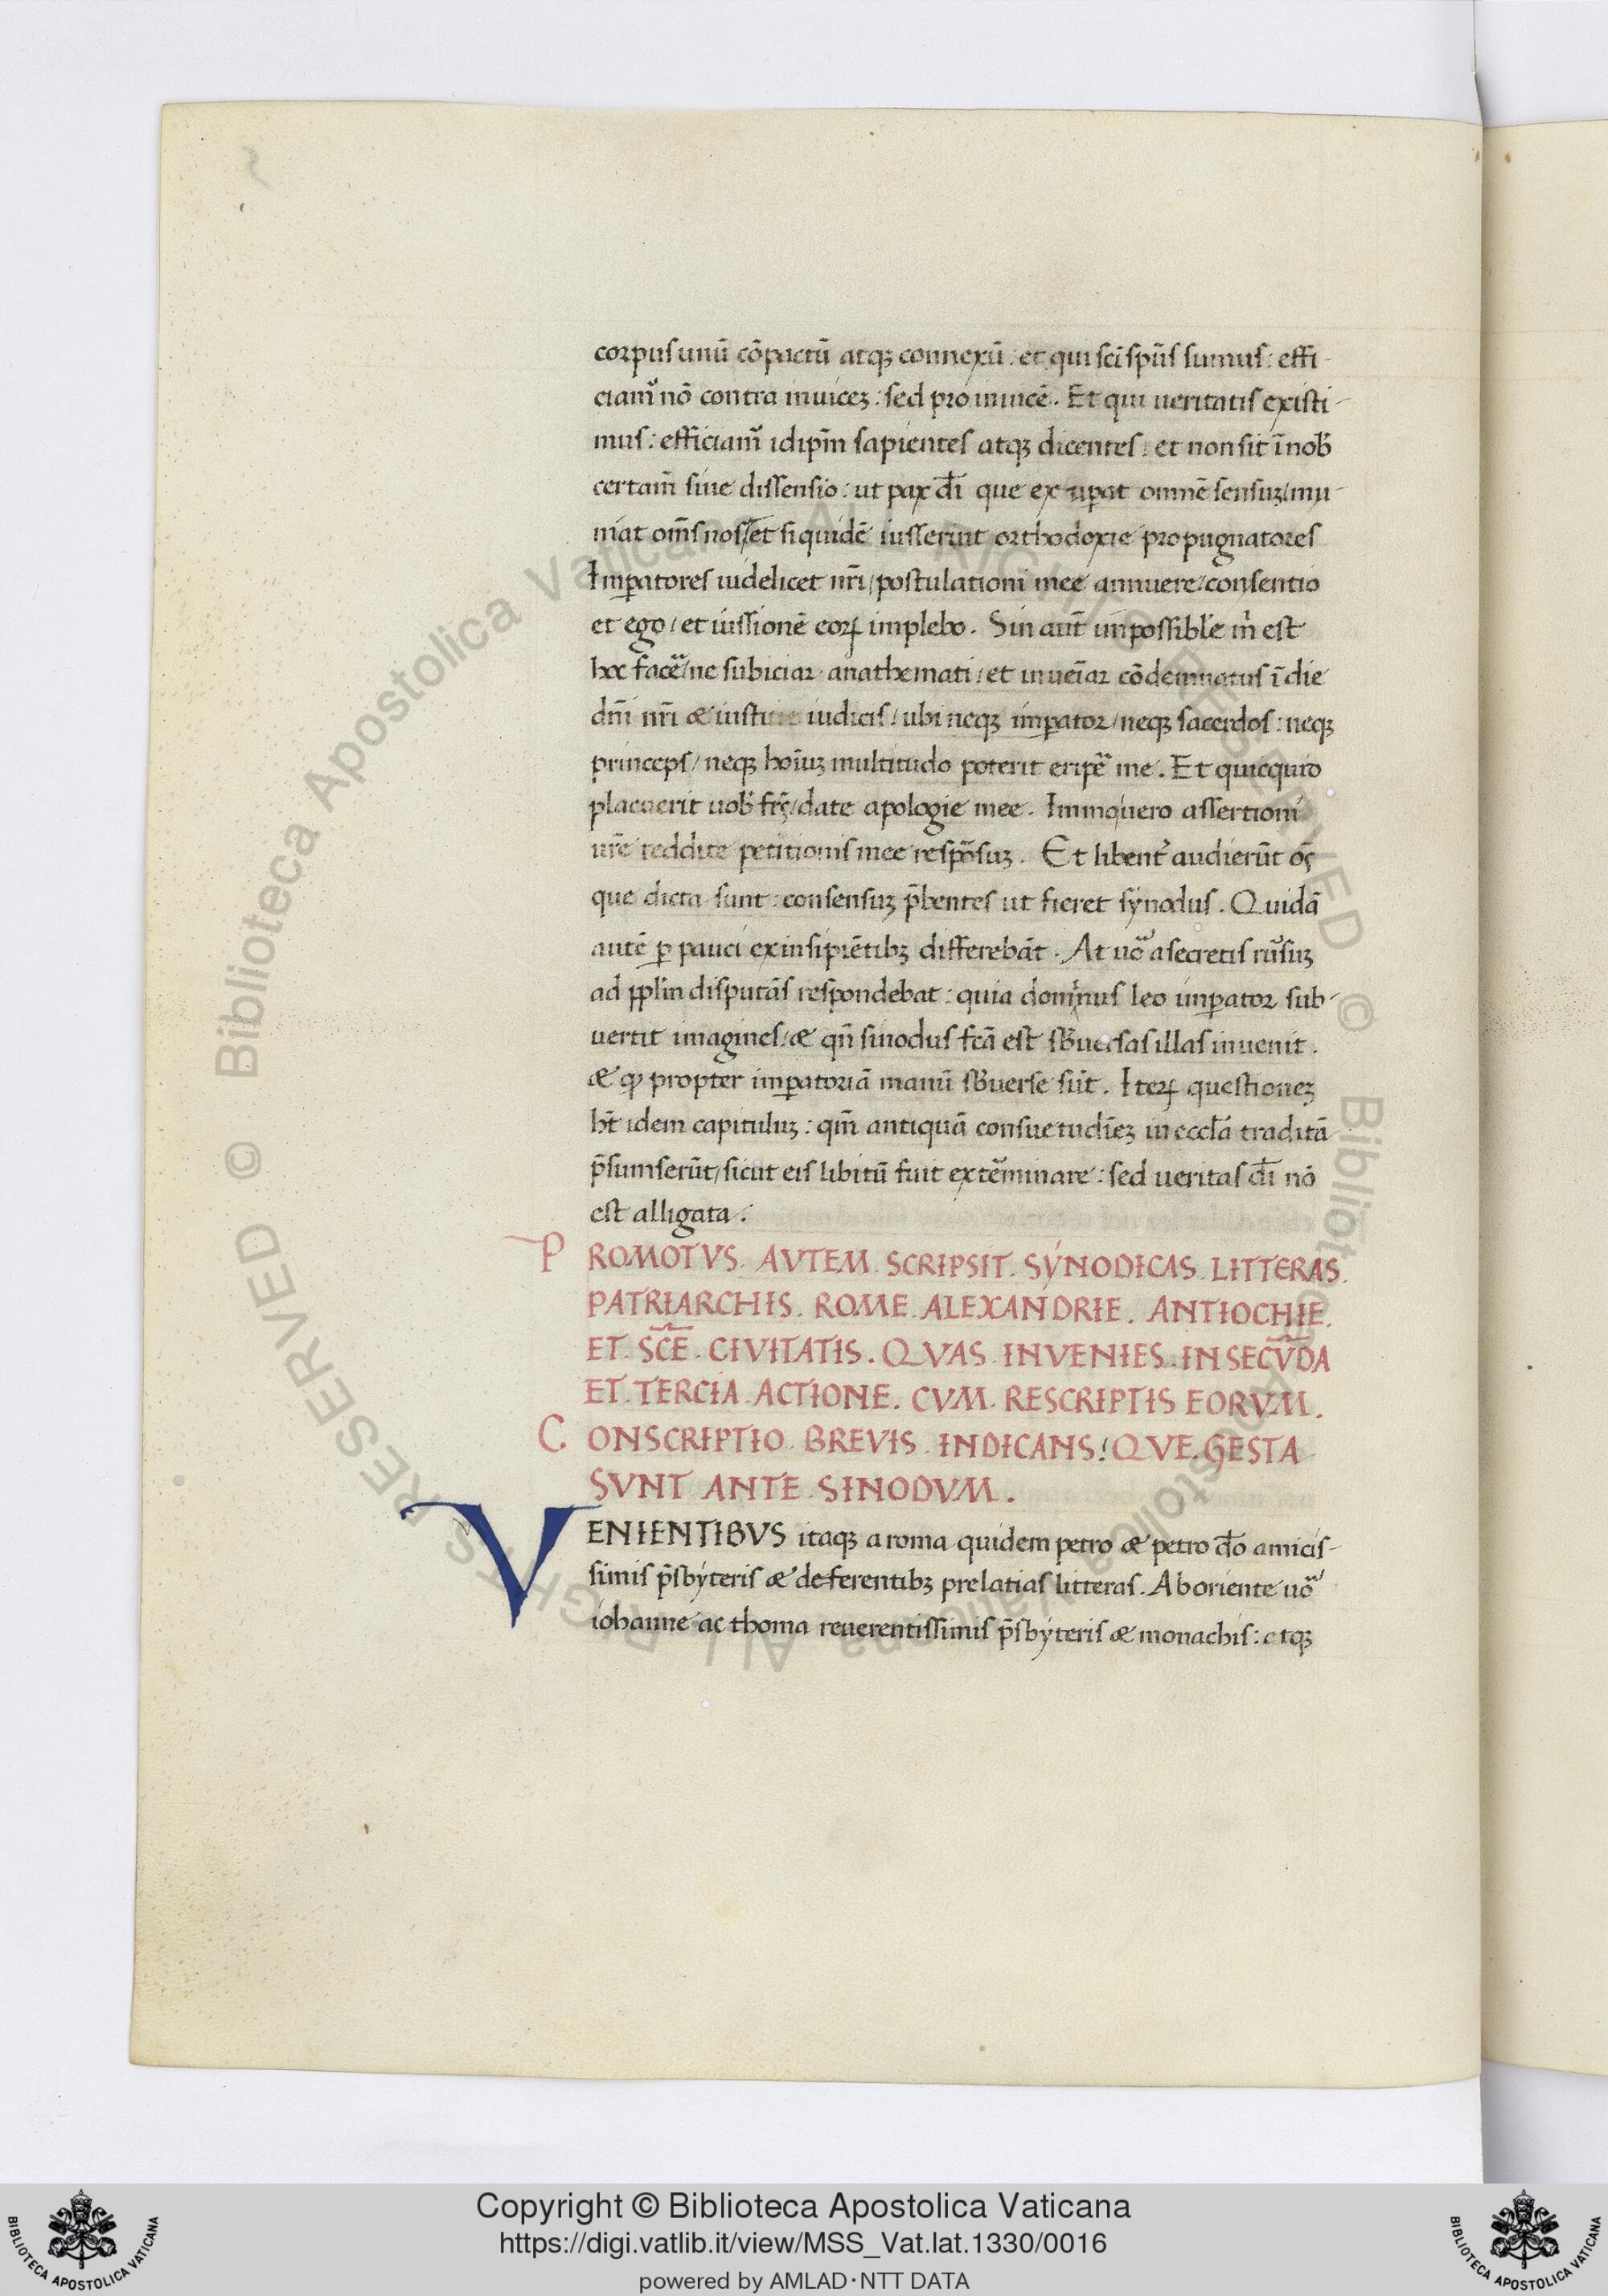 corpus unū cṓpactū atqꝫ connexū : et qui sc̄i sp̄us sumus : effi-
ciam᷒ nō contra inuiceꝫ : sed pro inuicē . Et qui ueritatis existi-
mus : efficiam᷒ idip̄m sapientes atqꝫ dicentes : et non sit ī nob᷒
certam̄ siue dissensio : ut pax dī que exuꝑat omnē sensuꝫ / mu-
niat om̄s nos / et siquidē iusserint orthodoxie propugnatores
Imꝑatores uidelicet nr̄i / postulationi mee annuere / consentio
et ego / et iussionē eoꝝ implebo . Sin aūt impossibile m̄ est
hoc facer̄ / ne subiciar anathemati / et inueīar cōdemnatus ī die
dn̄i nr̄i æ iustitie iudicis / ubi neqꝫ imꝑator / neqꝫ sacerdos : neqꝫ
princeps / neqꝫ hoīuꝫ multitudo poterit eriper̄ me . Et quicquid
placuerit uob᷒ frēs / date apologie mee . Immo uero assertioni
ur̄e reddite petitionis mee respōsuꝫ . Et libent᷒ audierūt oēs
que dicta sunt : consensuꝫ p̄bentes ut fieret synodus . Quidā
autē ꝑ pauci ex insipiētibꝫ differebāt . At uō a secretis rursuꝫ
ad ppl̄m disputās respondebat : quia dominus leo imꝑator sub-
uertit imagines / æ qn̄ sinodus fc̄a est sb᷒uersas illas inuenit .
æ ꝙ propter imꝑatoriā manū sb᷒uerse sūt . Iteꝝ questioneꝫ
hт̄ idem capituluꝫ : qm̄ antiquā consuetudīeꝫ in eccl̄a traditā
p̄sumserūt / sicut eis libitū fuit extēminare : sed ueritas dī nō
est alligata .
PROMOTVS . AVTEM . SCRIPSIT . SYNODICAS . LITTERAS .
PATRIARCHIS . ROME . ALEXANDRIE . ANTIOCHIE .
ET . SC̄E . CIVITATIS . QVAS . INVENIES . IN SECV̄DA
ET . TERCIA . ACTIONE . CVM . RESCRIPTIS EORVM .
CONSCRIPTIO . BREVIS . INDICANS : QVE . GESTA
SVNT ANTE . SINODVM .
VENIENTIBVS itaqꝫ a roma quidem petro æ petro do̅ amicis-
simis p̄sbyteris æ deferentibꝫ prelatias litteras . Ab oriente uō
iohanne ac thoma reuerentissimis p̄sbyteris æ monachis : atqꝫ
Copyright © Biblioteca Apostolica Vaticana
https://digi.vatlib.it/view/MSS_Vat.lat.1330/0016
powered by AMLAD·NTT DATA
BIBLIOTECA APOSTOLICA VATICANA
BIBLIOTECA APOSTOLICA VATICANA
© Biblioteca Apostolica Vaticana ALL RIGHTS RESERVED © Biblioteca Apostolica Vaticana ALL RIGHTS RESERVED